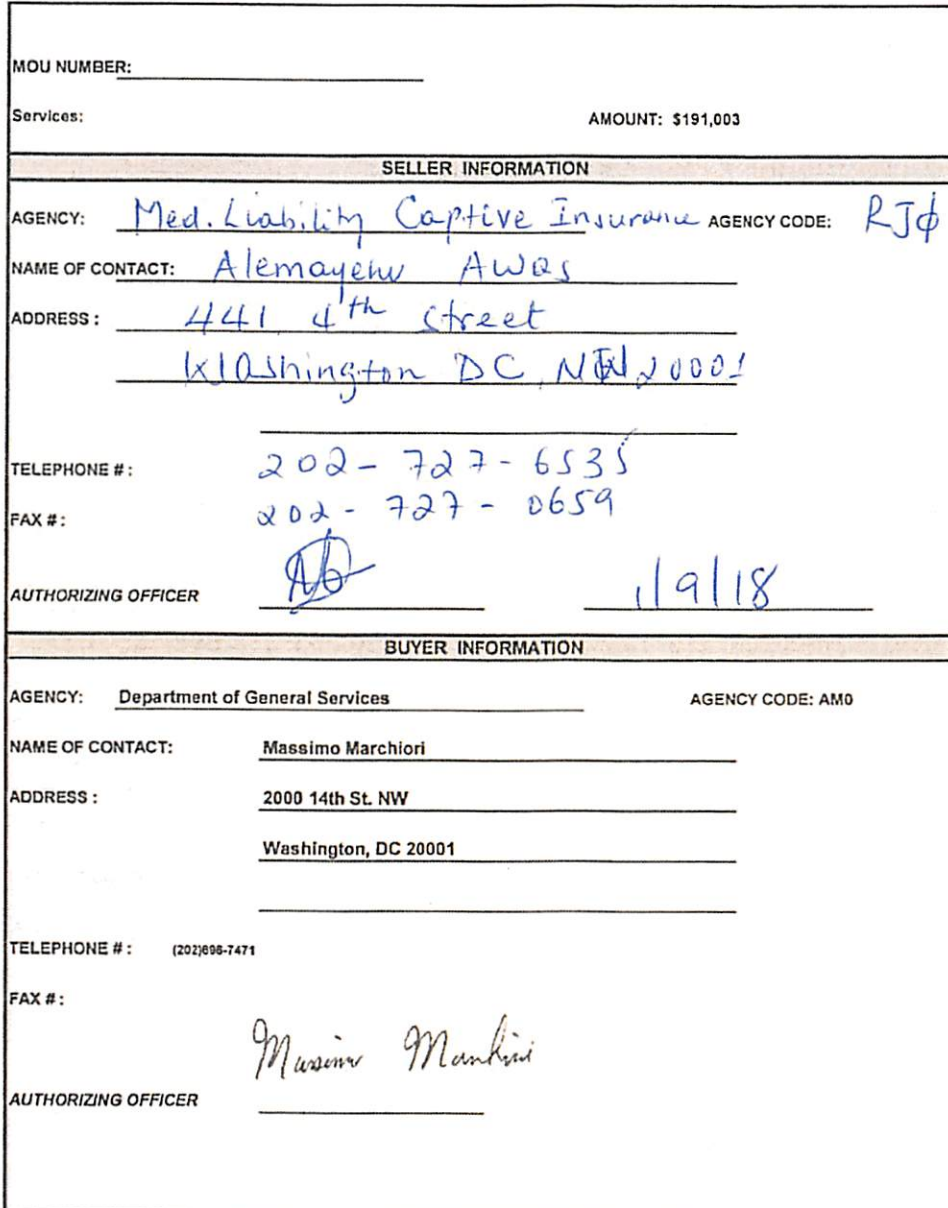 MOU NUMBER:
Services: AMOUNT: $191,003
SELLER INFORMATION
AGENCY: Med. Liability Captive Insurance AGENCY CODE: RJ0
NAME OF CONTACT: Alemayehu Awas
ADDRESS : 441 4th Street
Washington DC, NW 20001
TELEPHONE # : 202-727-6535
FAX # : 202-727-0659
AUTHORIZING OFFICER 1/9/18
BUYER INFORMATION
AGENCY: Department of General Services AGENCY CODE: AM0
NAME OF CONTACT: Massimo Marchiori
ADDRESS : 2000 14th St. NW
Washington, DC 20001
TELEPHONE # : (202)698-7471
FAX # :
Massimo Marchiori
AUTHORIZING OFFICER